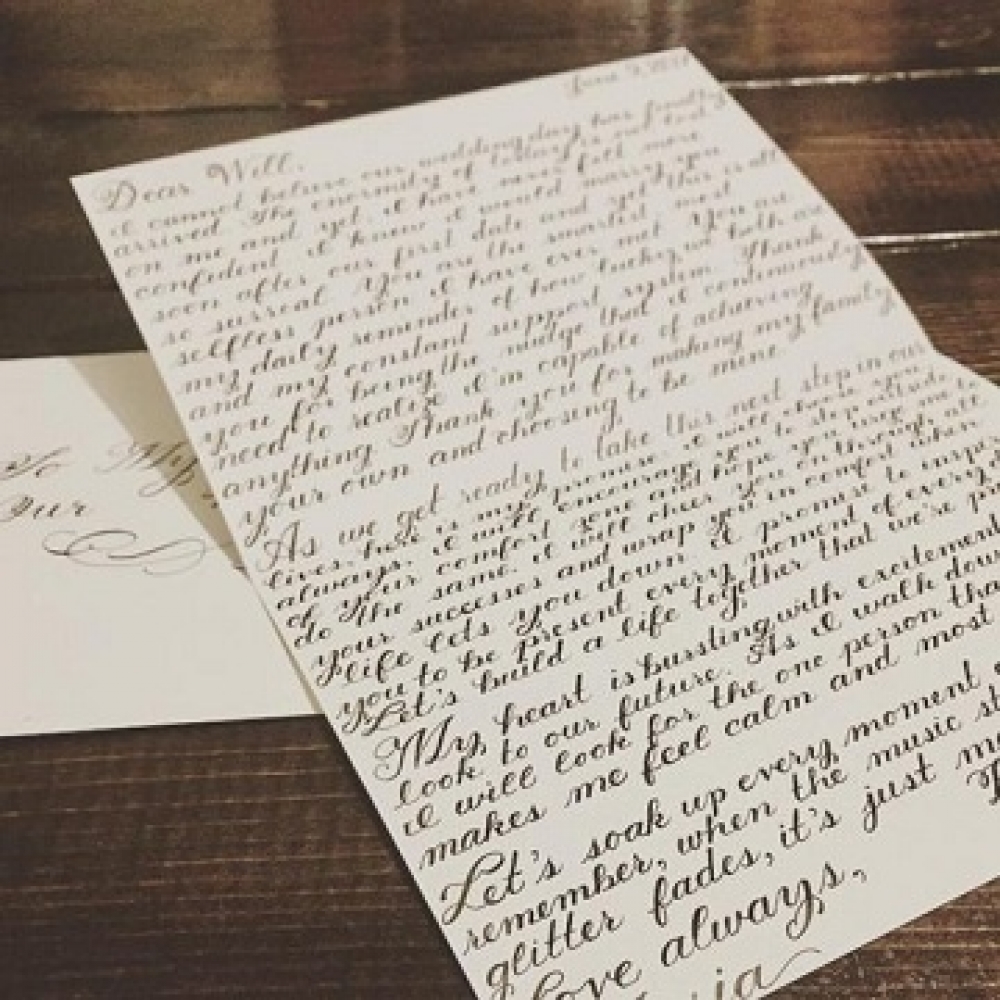 Dear Will,
I cannot believe our wedding day has finally
arrived. The enormity of today is not lost
on me and yet, I have never felt more
confident. I knew I would marry you
soon after our first date and yet this is all
so surreal. You are the smartest, most
selfless person I have ever met. You are
my daily reminder of how lucky we both are
and my constant support system. Thank
you for being the nudge that I continuously
need to realize I'm capable of achieving
anything. Thank you for making my family
your own and choosing to be mine.
As we get ready to take this next step in our
lives, here is my promise: I will choose you
always. I will encourage you to step outside
of your comfort zone and hope you urge me to
do the same. I will cheer you on through all
your successes and wrap you in comfort when
life lets you down. I promise to inspire
you to be present every moment of every
Let's build a life together that we're
My heart is bursting with excitement
look to our future. As I walk down
I will look for the one person that
makes me feel calm and most
Let's soak up every moment
remember, when the music
glitter fades, it's just
Love always,
To My
Our